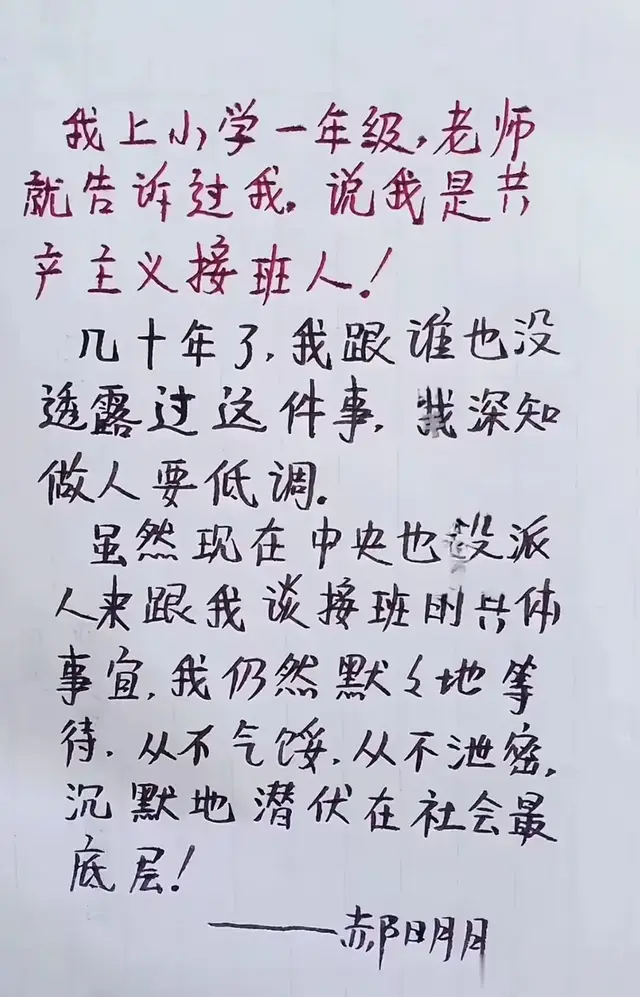 我上小学一年级,老师
就告诉过我,说我是共
产主义接班人!
几十年了,我跟谁也没
透露过这件事,我深知
做人要低调.
虽然现在中央也没派
人来跟我谈接班的具体
事宜,我仍然默々地等
待,从不气馁,从不泄密,
沉默地潜伏在社会最
底层!
——郝明月